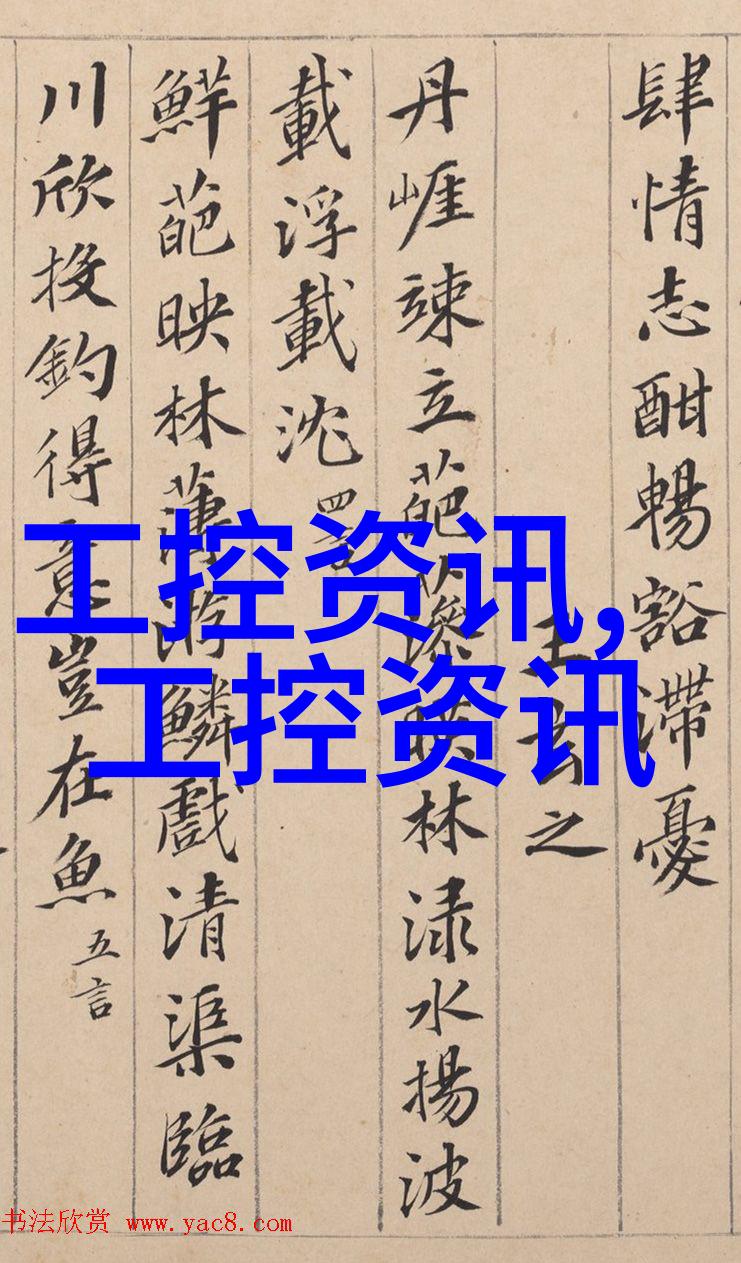 肆情志酣暢豁滯憂
王玄之
丹崕竦立葩藻暎林淥水揚波
載浮載沈 四言
鮮葩映林薄游鱗戲清渠臨
川欣投釣得意豈在魚 五言
工控资讯,
工控资讯
书法欣赏 www.yac8.com